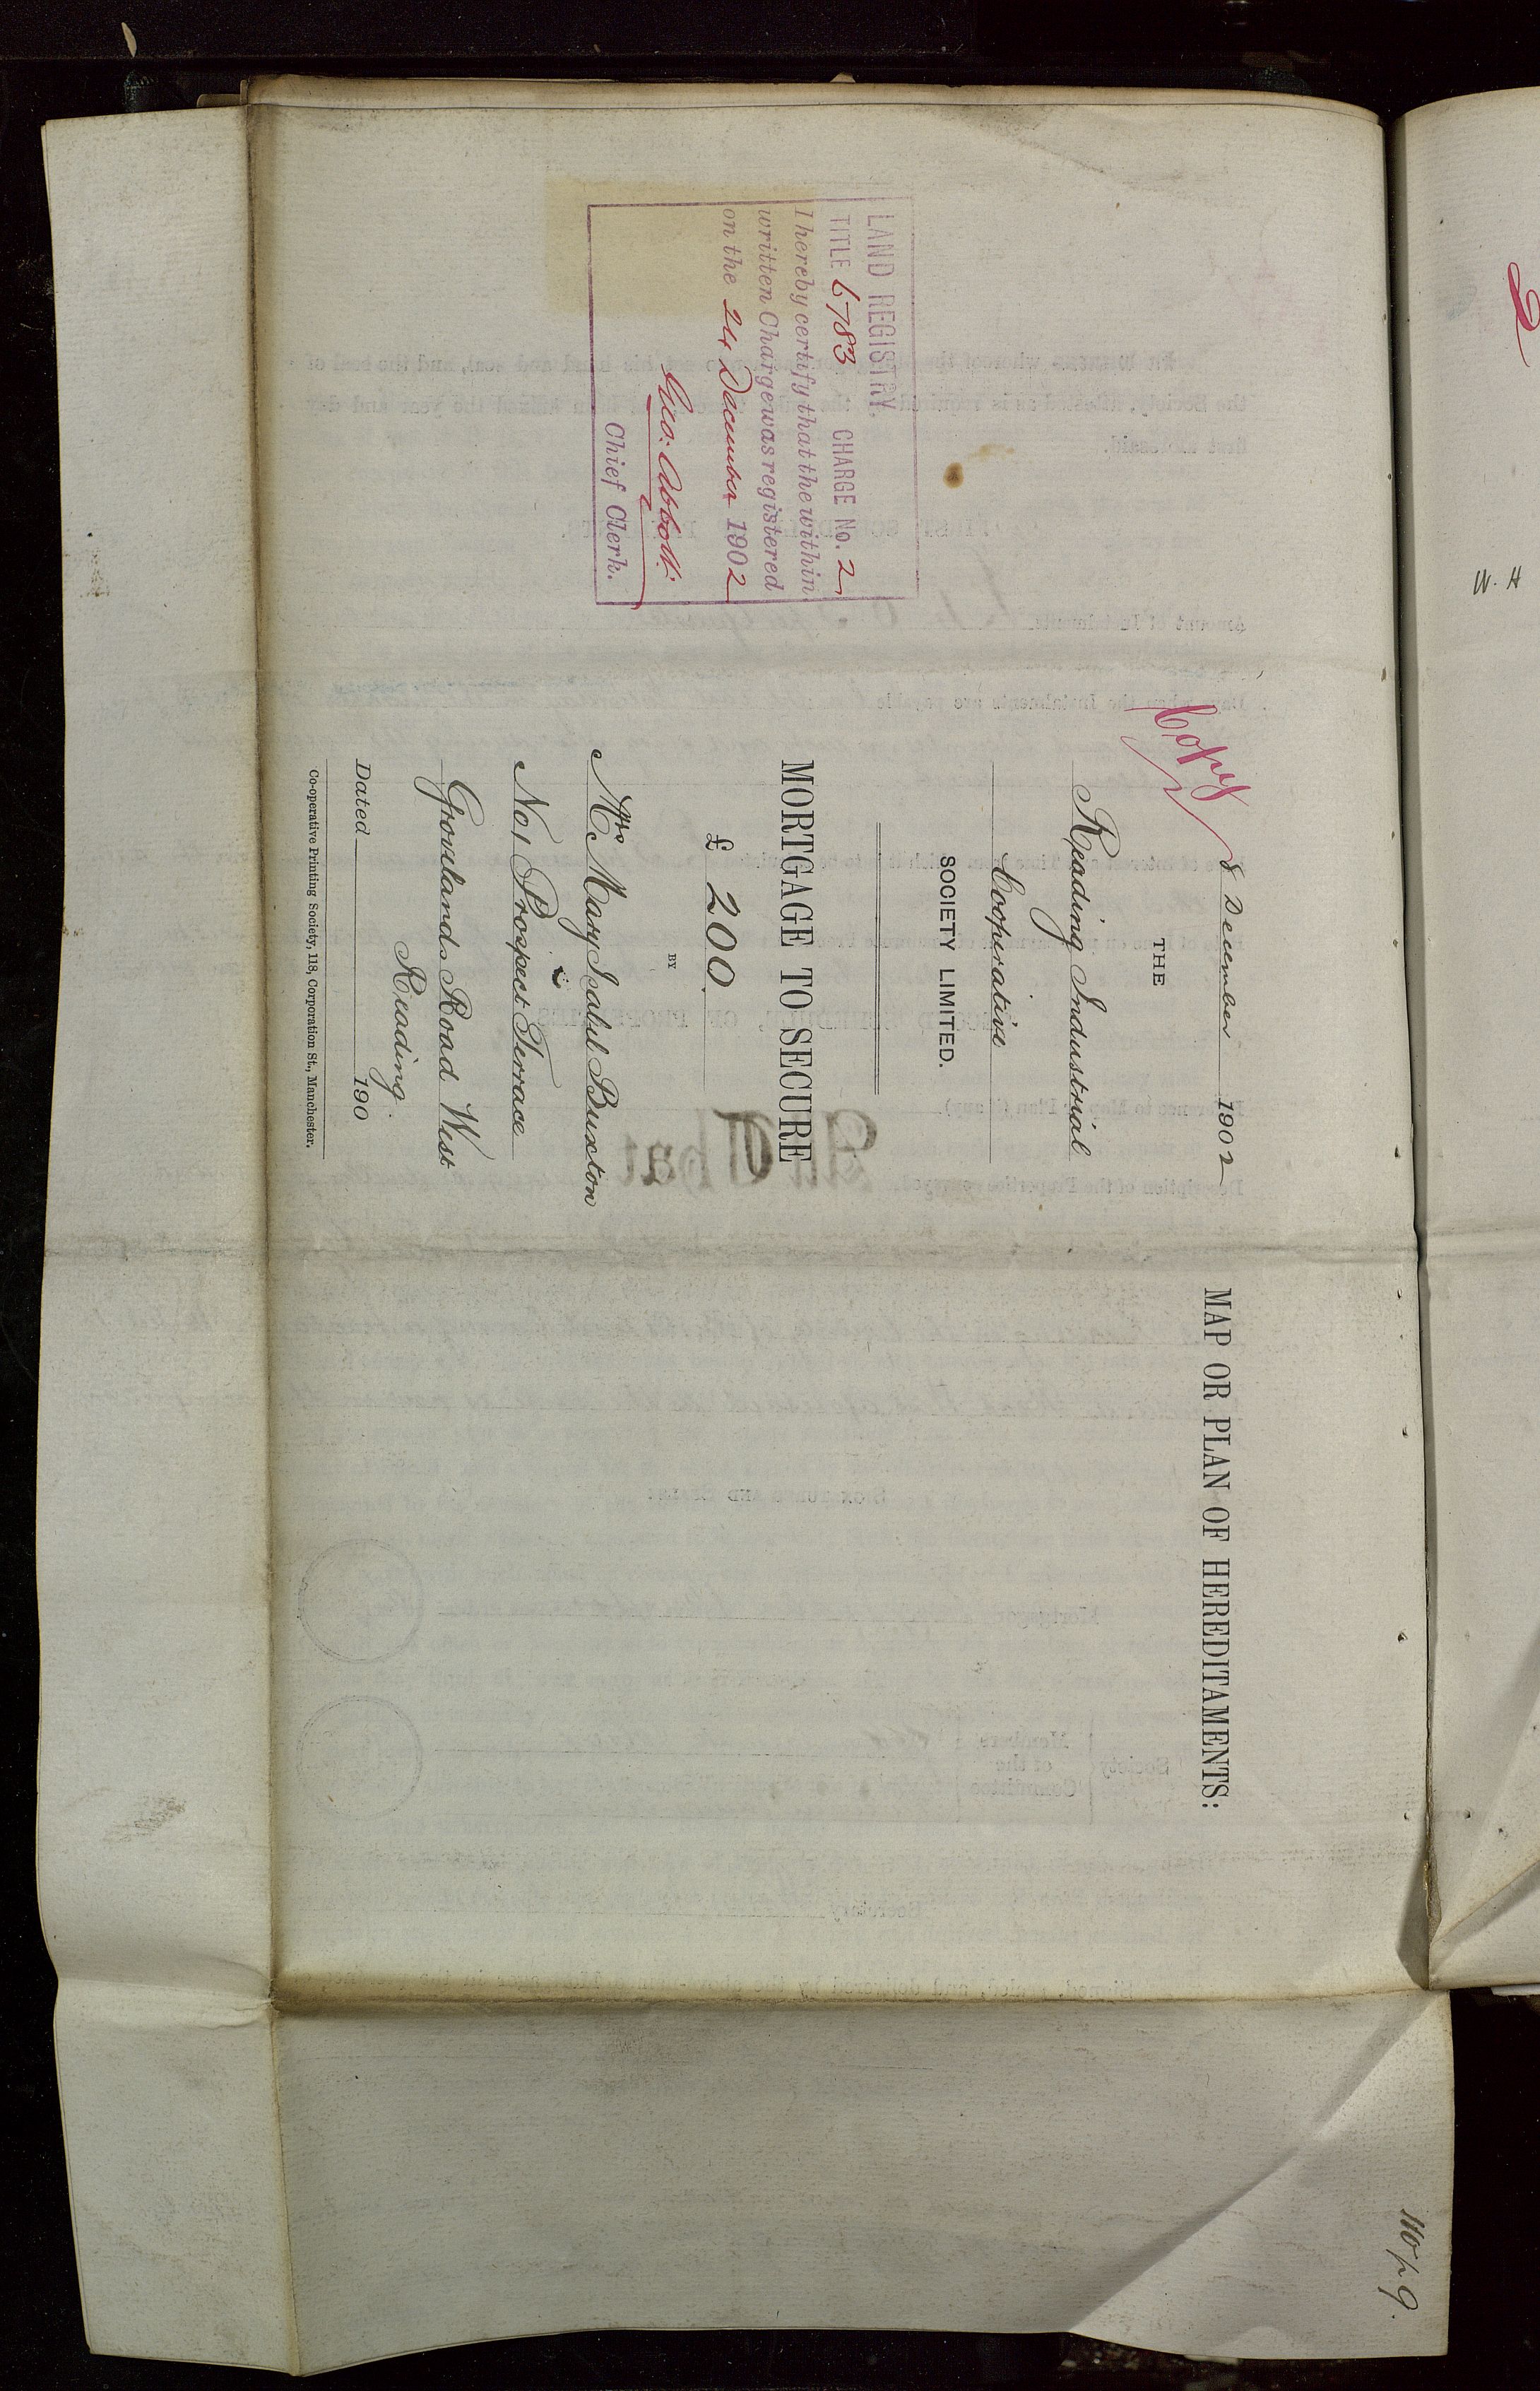 LAND REGISTRY.
TITLE 6783 CHARGE No. 2
I hereby certify that the within
written Charge was registered
on the 24 December 1902
Geo: Abbott
Chief Clerk.
Copy
8 December 1902
THE
Reading Industrial
Cooperative
SOCIETY LIMITED.
MORTGAGE TO SECURE
£ 200.
BY
Mrs Mary Isabel Buxton
No 1 Prospect Terrace
Grovelands Road West
Reading
Dated 190
Co-operative Printing Society, 118, Corporation St., Manchester.
MAP OR PLAN OF HEREDITAMENTS:
W. H
2